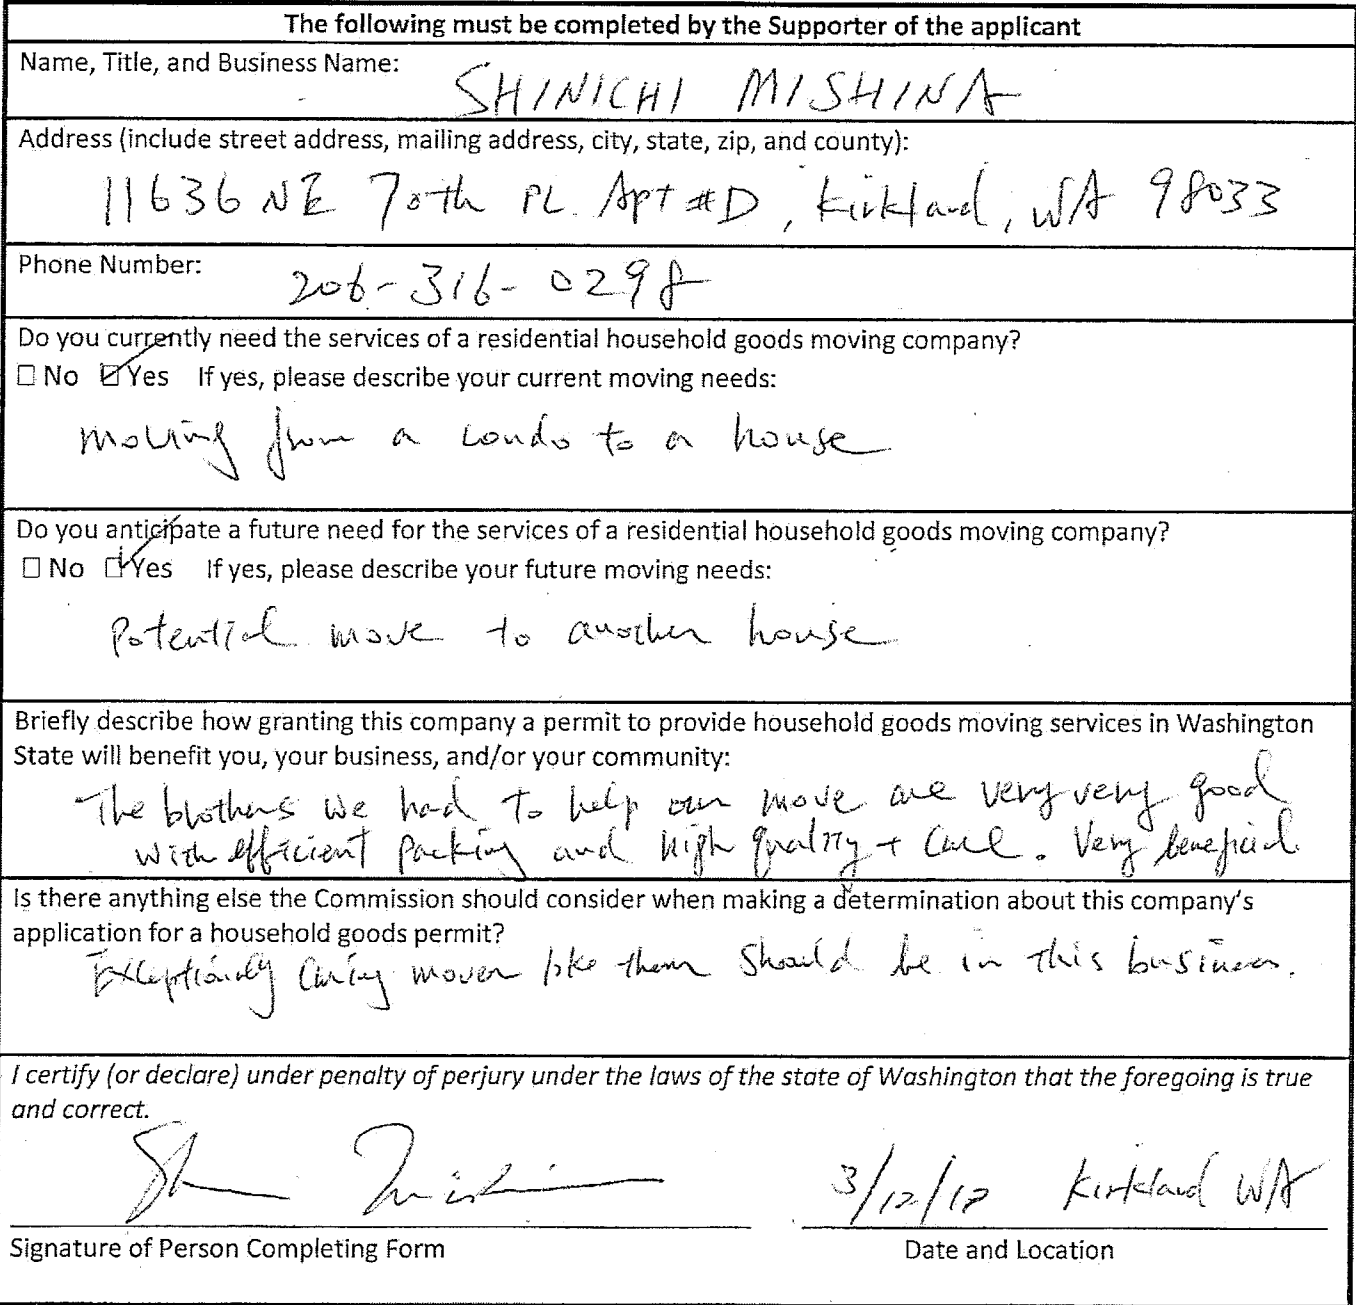 The following must be completed by the Supporter of the applicant
Name, Title, and Business Name:
SHINICHI MISHINA
Address (include street address, mailing address, city, state, zip, and county):
11636 NE 70th PL. Apt #D, Kirkland, WA 98033
Phone Number:
206-316-0298
Do you currently need the services of a residential household goods moving company?
☐ No ☑ Yes If yes, please describe your current moving needs:
moving from a condo to a house
Do you anticipate a future need for the services of a residential household goods moving company?
☐ No ☑ Yes If yes, please describe your future moving needs:
Potential move to another house
Briefly describe how granting this company a permit to provide household goods moving services in Washington
State will benefit you, your business, and/or your community:
The brothers we had to help our move are very very good
with efficient packing and high quality + care. Very beneficial
Is there anything else the Commission should consider when making a determination about this company's
application for a household goods permit?
Exceptionally caring mover like them should be in this business.
I certify (or declare) under penalty of perjury under the laws of the state of Washington that the foregoing is true
and correct.
3/12/ Kirkland WA
Signature of Person Completing Form
Date and Location